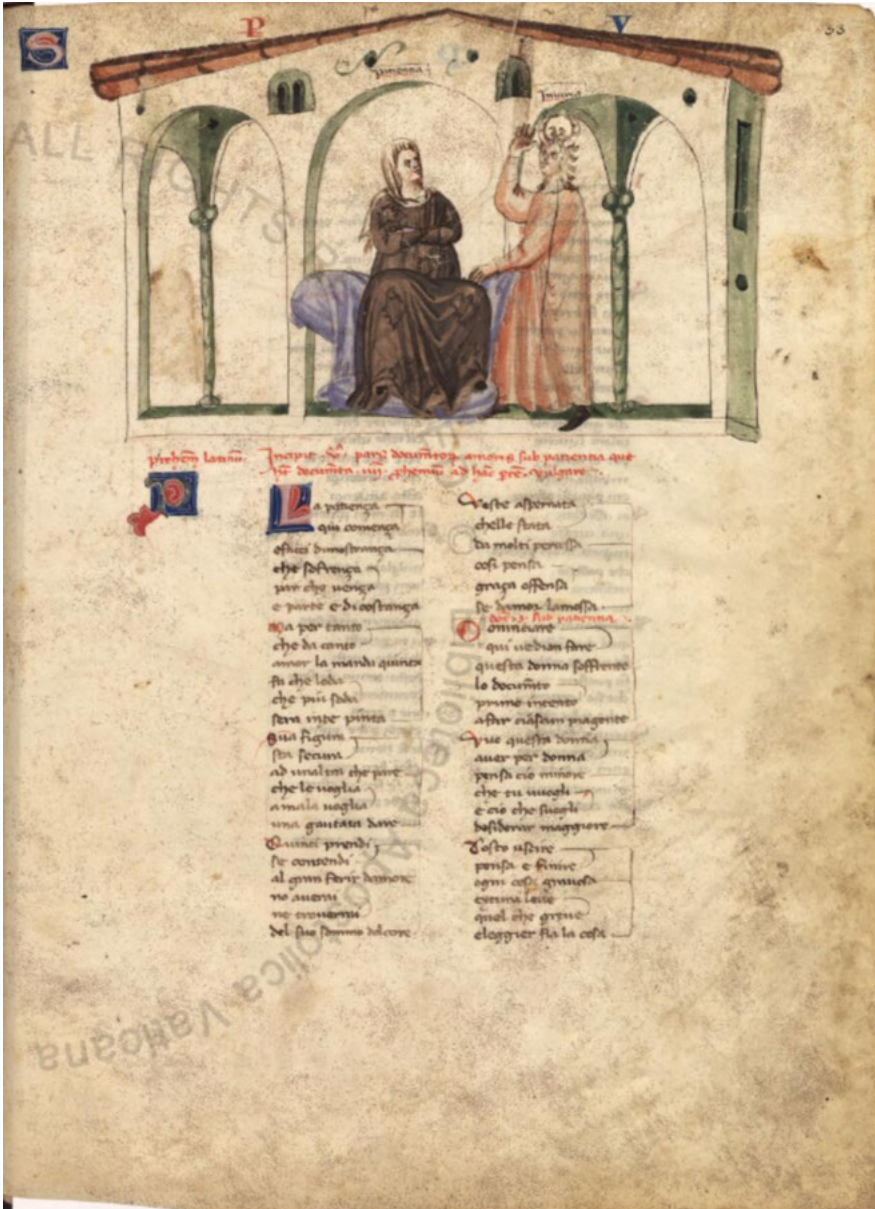 S
P
V
33
patientia
Iniuria
prohem latinu.
Incipit .V. pars documtor amoris sub patientia que
documta .iiii. phemiu ad hac pte vulgare
La patiença
qui comença
che sofrença
par che vença
e parte e di costança
Ma per tanto
che da canto
amor la manda quinta
fa che loda
che piu soda
sera inte pinta
Sua figura
sta secura
ad unaltra che pare
che le voglia
a mala voglia
una gautata dare
Quinci prendi
se contendi
al gran ferir damore
no averai
ne troverai
del suo sommo dolcore
Veste aspernata
chelle stata
da molti percossa
cosi pensa
graça offensa
se damor lamossa
doc. sub patientia
Cominciare
qui vedian fare
questa donna soffrente
lo documto
primo intento
Vuo questa donna
aver per donna
pensa cio minore
che tu vuogli
e cio che fuogli
desiderar maggiore
Tosto uscire
pensa e finire
ogni cosa gravosa
quel che greve
eleggier fia la cosa
ALL RIGHTS
© Biblioteca Apostolica Vaticana